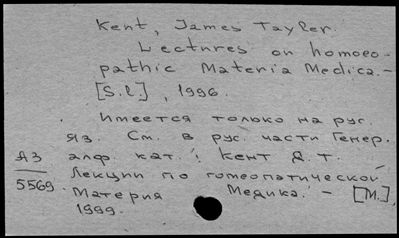 Kent, James Tayler.
Lectures on homoeo-
pathic Materia Medica. -
[S.l.], 1996.
Имеется только на рус.
яз. См. в рус. части Генер.
алф. кат.: Кент Д. Т.
Лекции по гомеопатической
Материя Медика. - [М.]
1999.
АЗ
5569